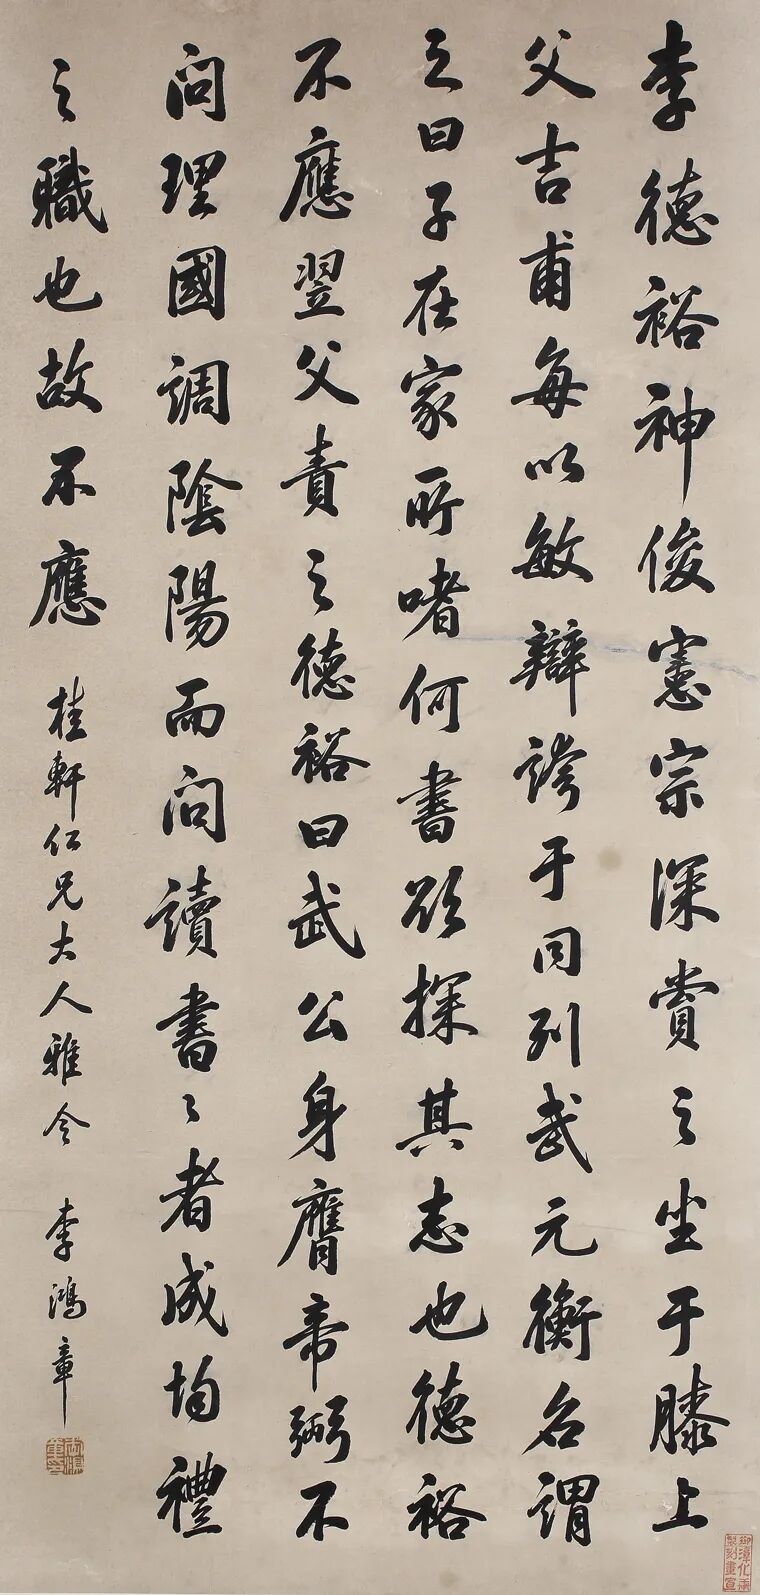 李德裕神俊憲宗深賞之坐于膝上
父吉甫每以敏辯誇于同列武元衡名謂
之曰子在家所嗜何書欲探其志也德裕
不應翌父責之德裕曰武公身膺帝弼不
問理國調陰陽而問讀書〻者成均禮
之職也故不應
桂軒仁兄大人雅令
李鴻章